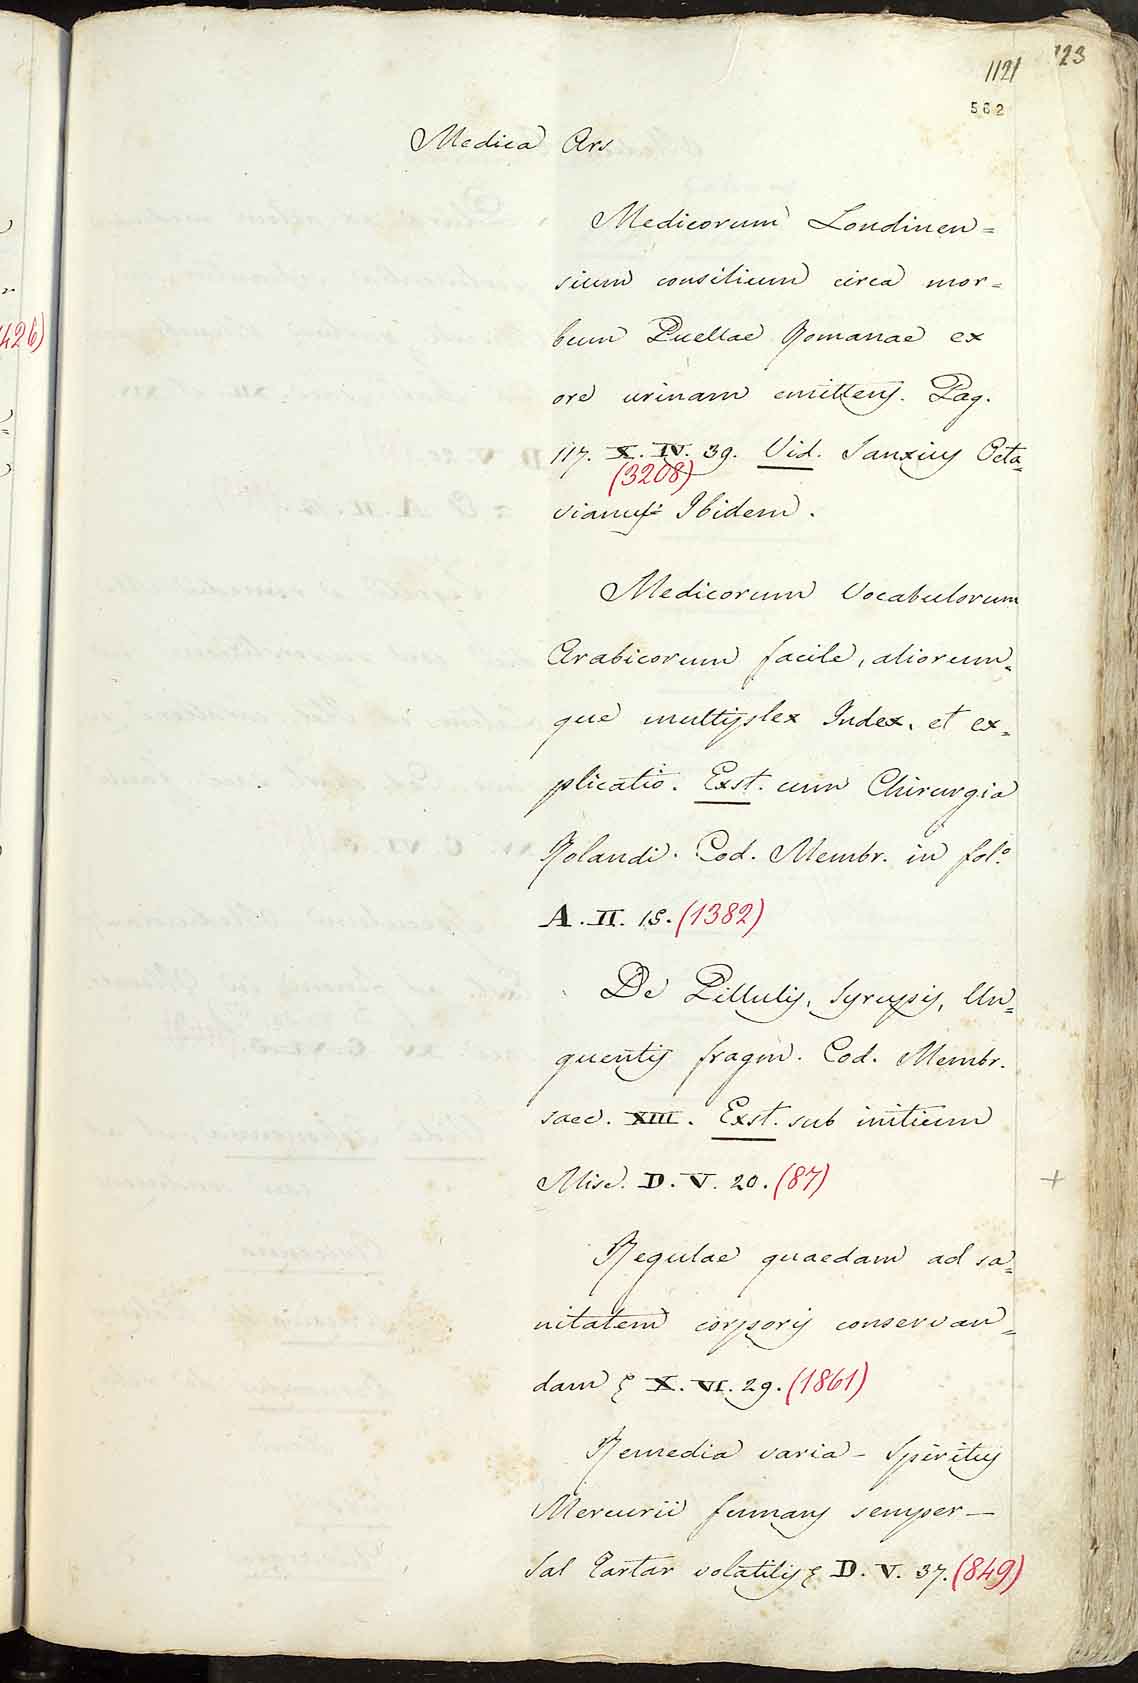 1121 123
562
Medica Ars
Medicorum Londinen=
sium consilium circa mor=
bum Puellae Romanae ex
ore urinam emittens. Pag.
117. X. IV. 39. Vid. Sanxius Octa=
(3208)
vianus Ibidem.
Medicorum Vocabulorum
Arabicorum facile, aliorum=
que multiplex Index, et ex=
plicatio. Exst. cum Chirurgia
Rolandi. Cod. Membr. in fol.º
A. II. 15. (1382)
De Pillulis, Syrupis, Un=
quentis fragm. Cod. Membr.
saec. XIII. Exst. sub initium
Misc. D. V. 20. (87)
Regulae quaedam ad sa=
nitatem corporis conservan=
dam X. VI. 29. (1861)
Remedia varia - Spiritus
Mercurii fumans semper -
Sal Tartar volatilis D. V. 37. (849)
426)